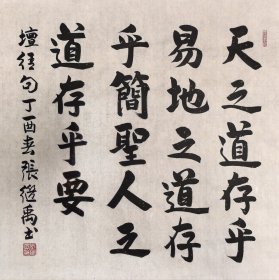 天之道存乎
易地之道存
乎簡聖人之
道存乎要
壇經句丁酉春張繼禹書